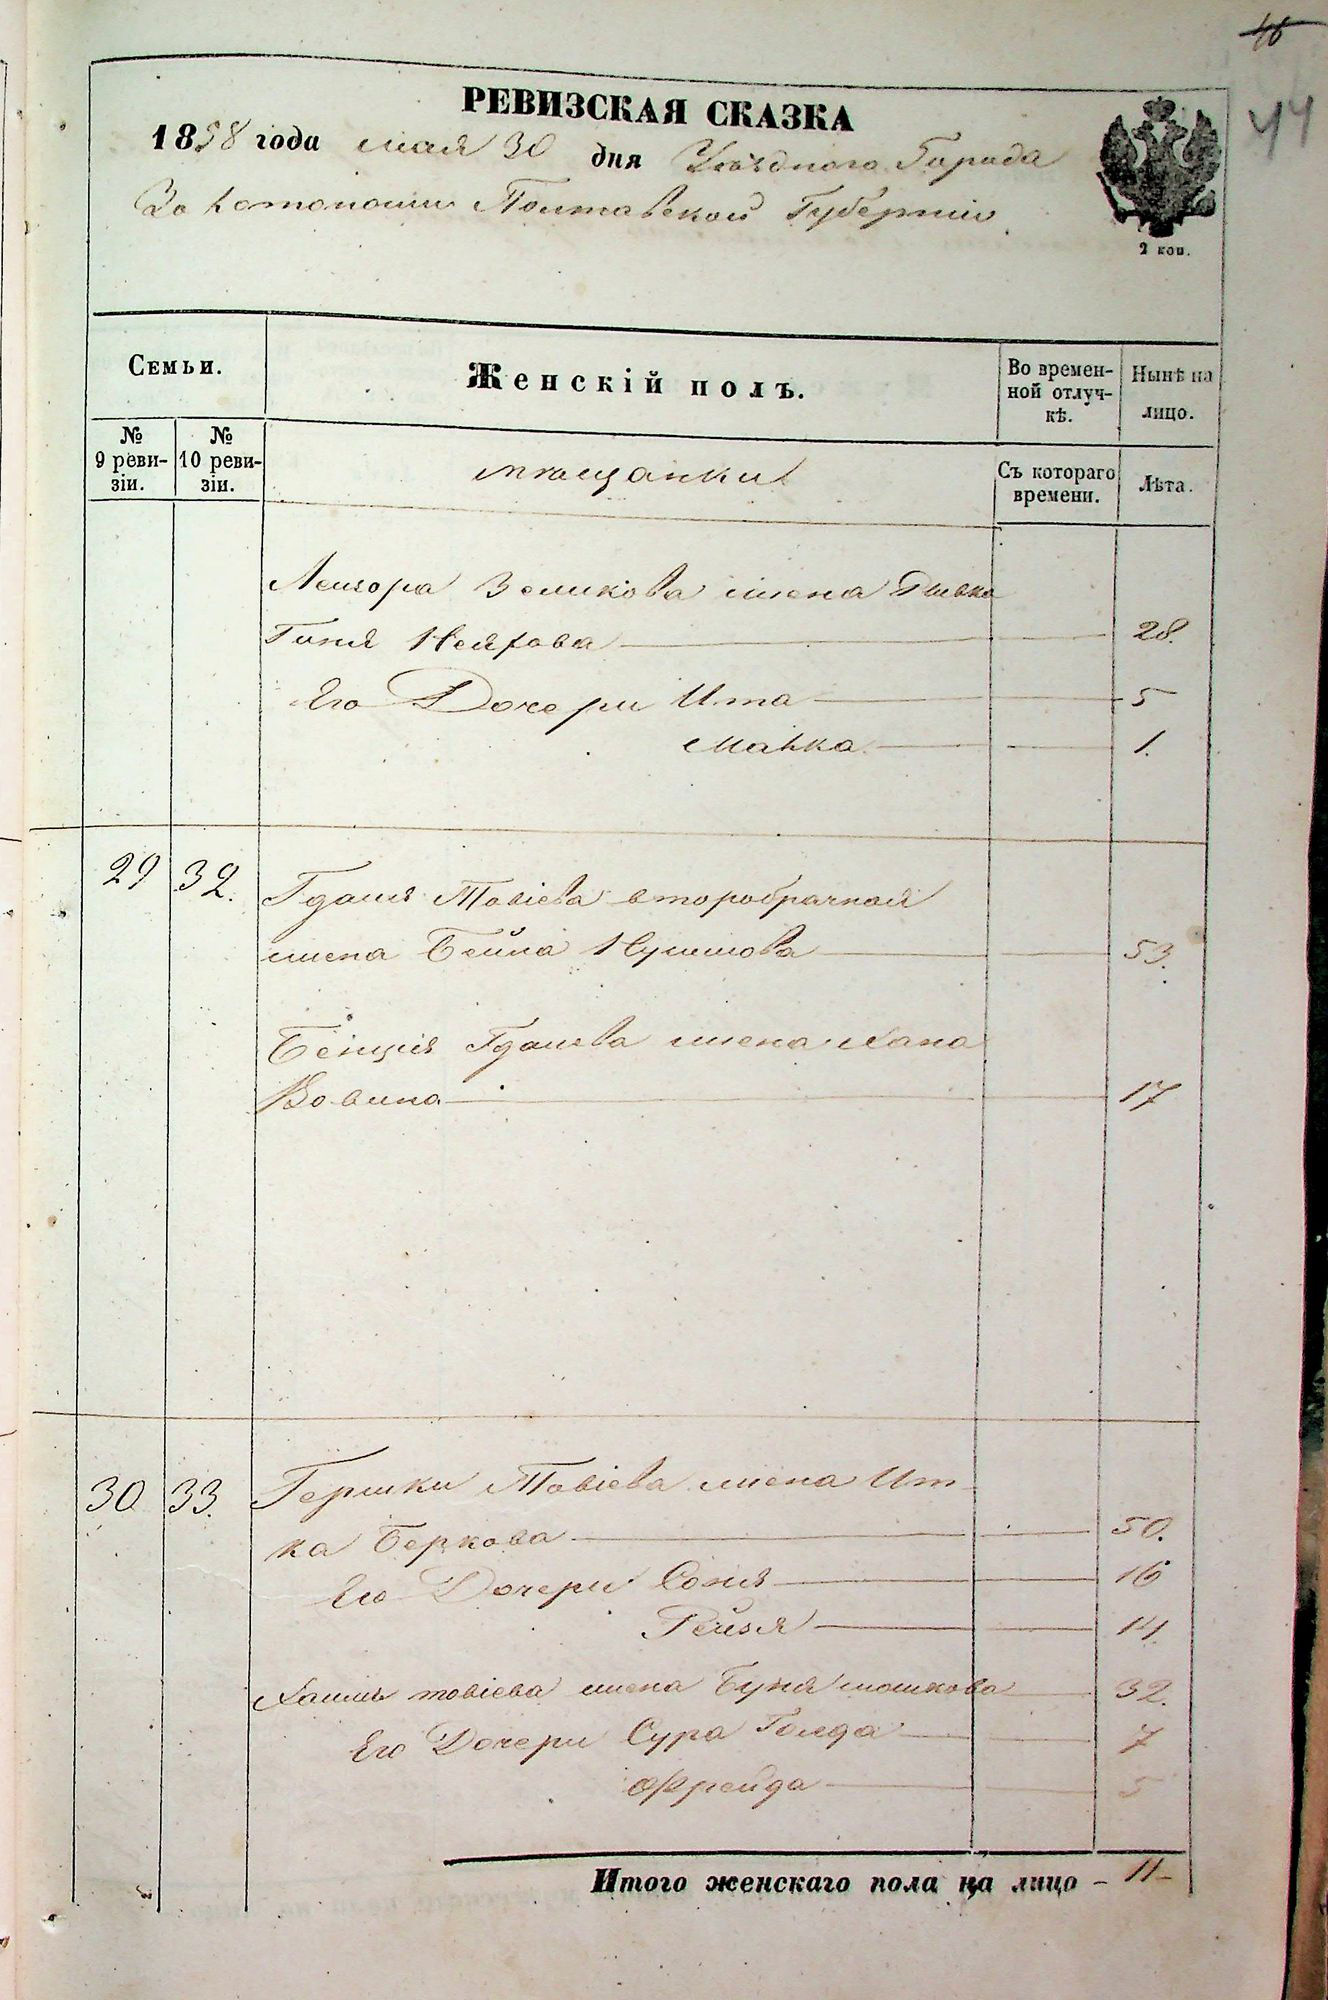 46
44
РЕВИЗСКАЯ СКАЗКА
1858 года мая 30 дня Уѣзднаго Города
Золотоноши Полтавской Губерніи
2 коп.
Семьи.
Женскій полъ.
Во временной отлучкѣ.
Нынѣ на лицо.
№ 9 ревизіи.
№ 10 ревизіи.
мѣщанки
Съ котораго времени.
Лѣта.
Лейзора Зеликова жена Ривка
Геня 28.
Его Дочери Ита 5
Малка 1.
29 32. Гдаля Товіева второбрачная
жена Бейла 53.
Бенція Гдалева жена Хана
Вовина 17
30 33. Гершки Товіева жена Ит
ка Беркова 50.
Его Дочери Соня 16
Рейзя 14.
Хаима товіева жена Буня мошкова 32.
Его Дочери Сура Голда 7
Фрейда 5
Итого женскаго пола на лицо - 11 -